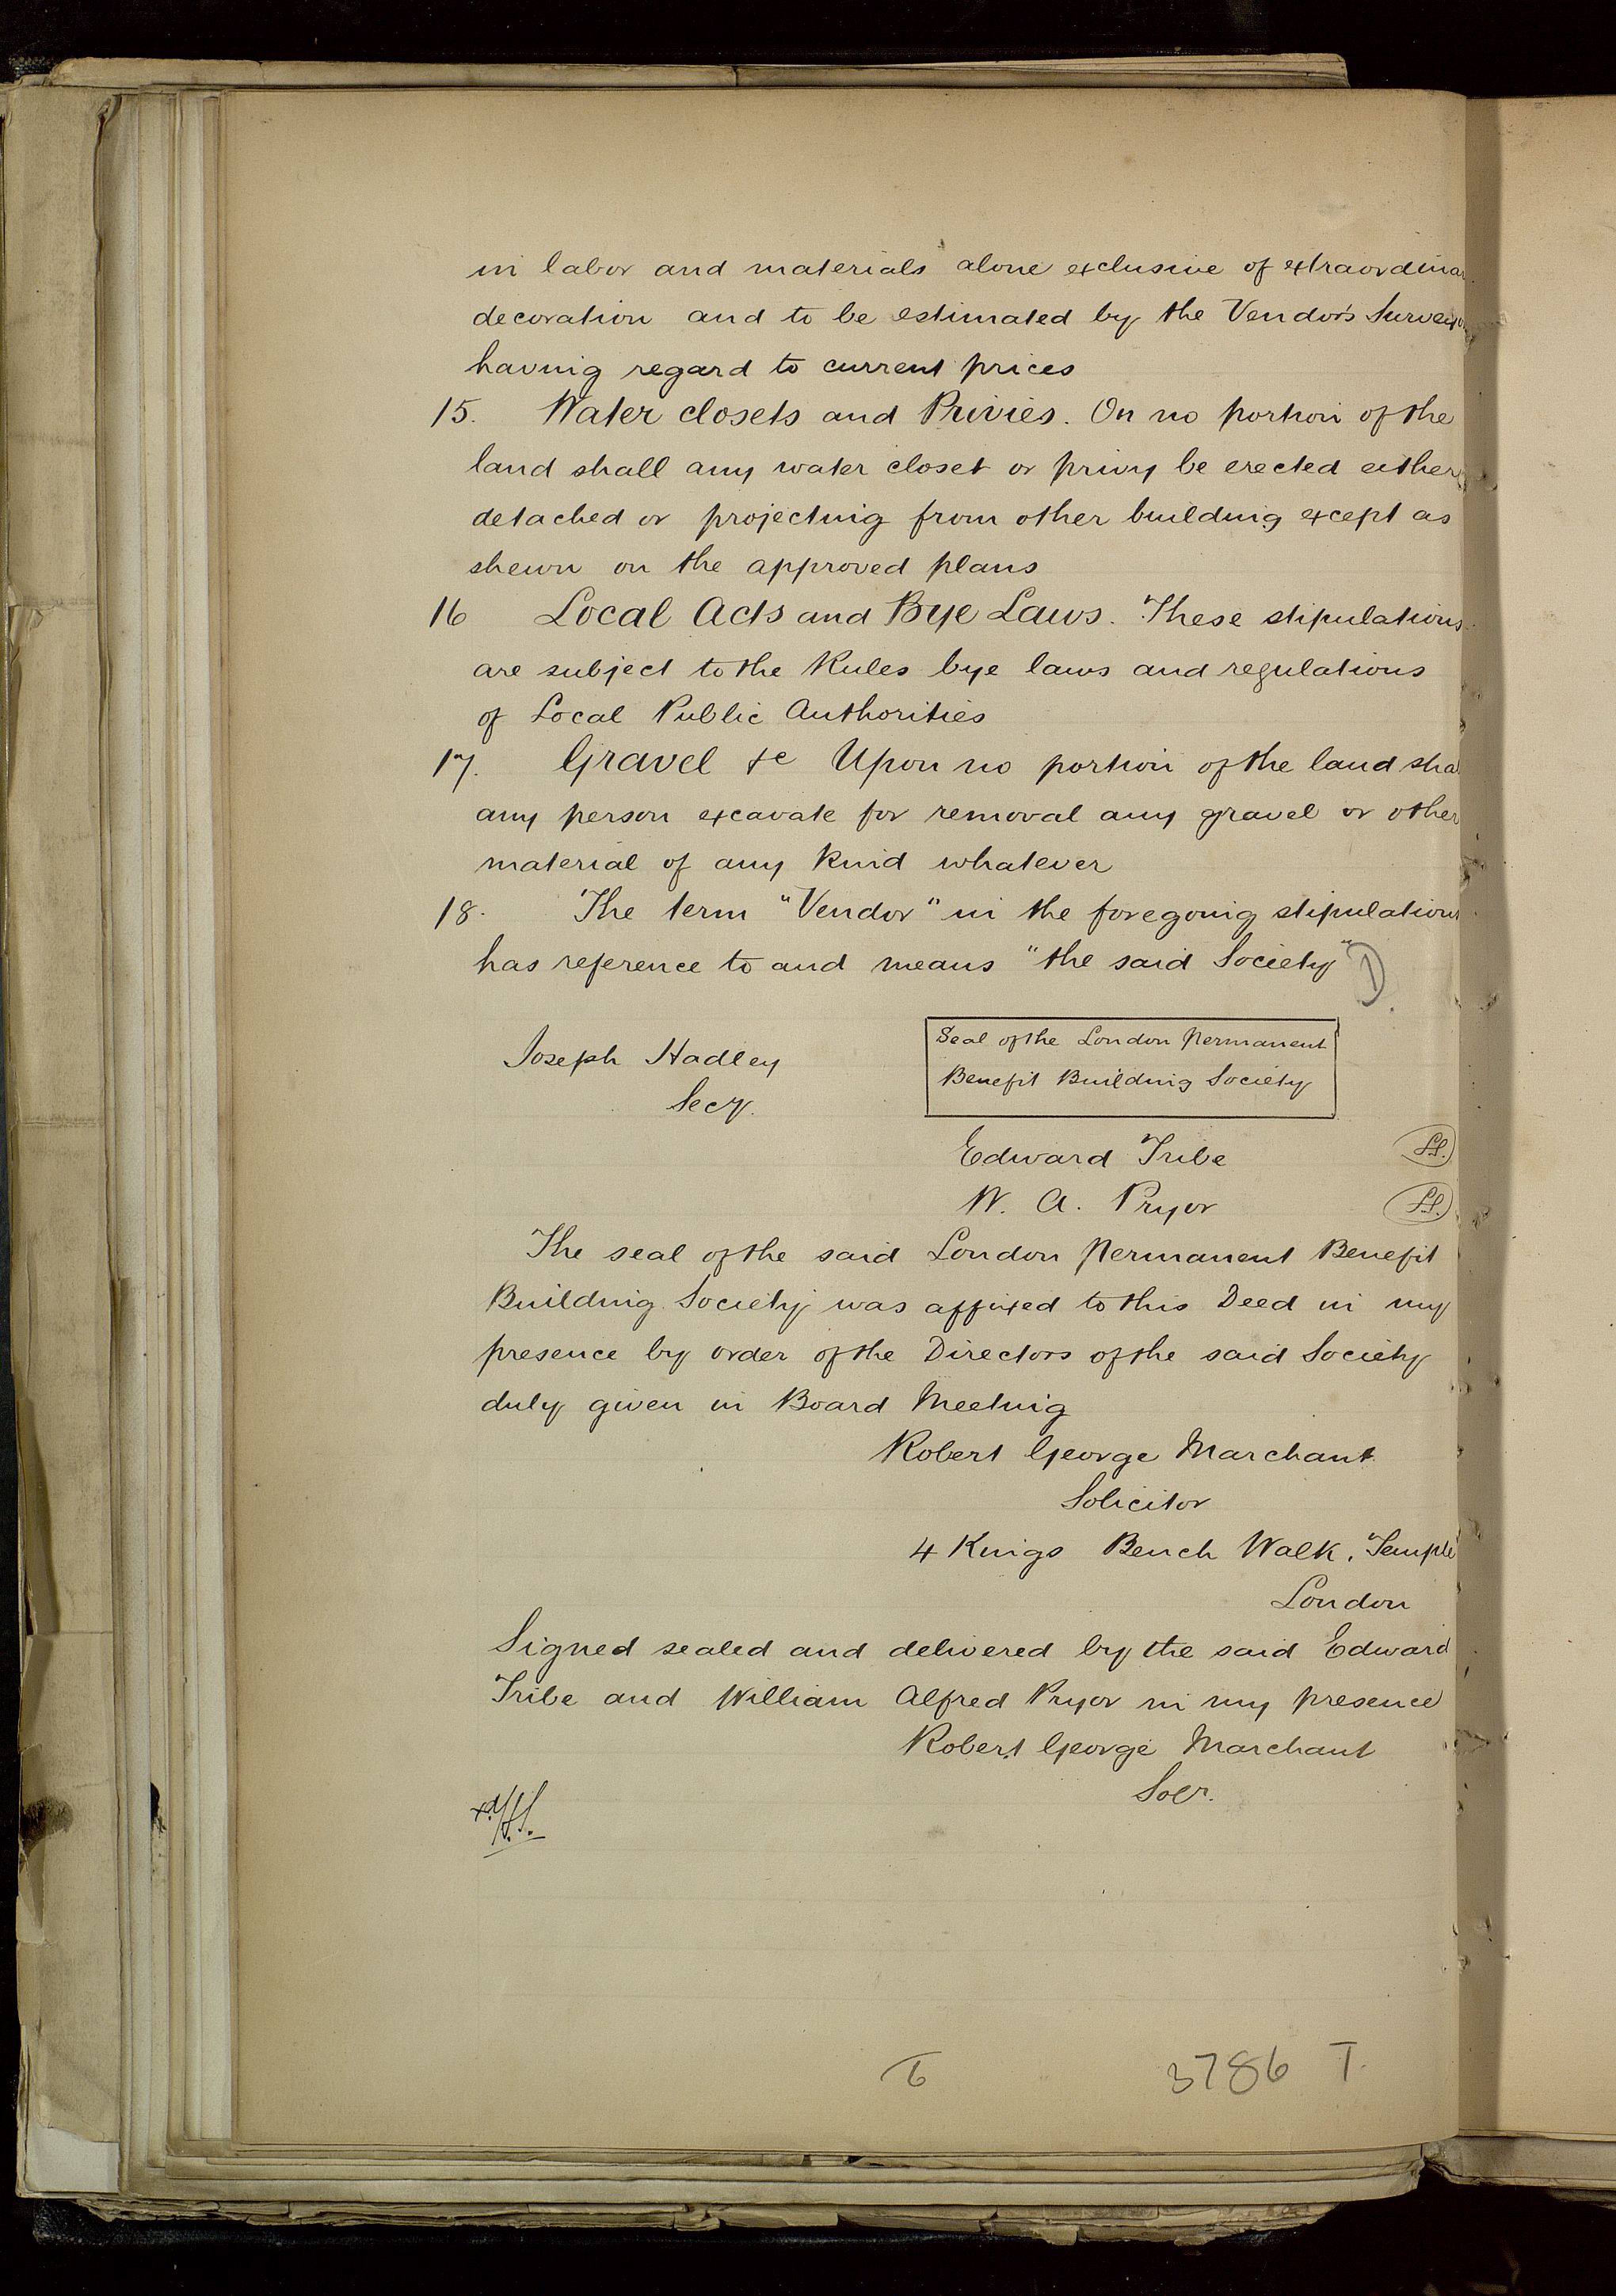 in labor and materials alone exclusive of extraordina
decoration and to be estimated by the Vendor's Surveyo
having regard to current prices
15. Water closets and Privies. On no portion of the
land shall any water closet or privy be erected either
detached or projecting from other building except as
shewn on the approved plans
16 Local Acts and Bye Laws. These stipulations
are subject to the Rules bye laws and regulations
of Local Public Authorities
17. Gravel &c Upon no portion of the land sha
any person excavate for removal any gravel or other
material of any kind whatever
18. The term "Vendor" in the foregoing stipulations
has reference to and means "the said Society" D.
Joseph Hadley
Secy.
Seal of the London Permanent
Benefit Building Society
Edward Tribe L.S.
W. A. Pryor L.S.
The seal of the said London Permanent Benefit
Building Society was affixed to this Deed in my
presence by order of the Directors of the said Society
duly given in Board Meeting
Robert George Marchant
Solicitor
4 Kings Bench Walk, Temple
London
Signed sealed and delivered by the said Edward
Tribe and William Alfred Pryor in my presence
Robert George Marchant
Solr.
3786 T.